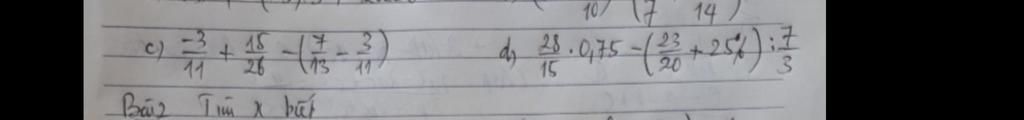 10 (7 14)
c) \frac{-3}{11} + \frac{15}{26} - (\frac{7}{13} - \frac{3}{11}) d) \frac{28}{15} . 0,75 - (\frac{23}{20} + 25%) : \frac{7}{3}
Bài 2 Tìm x biết